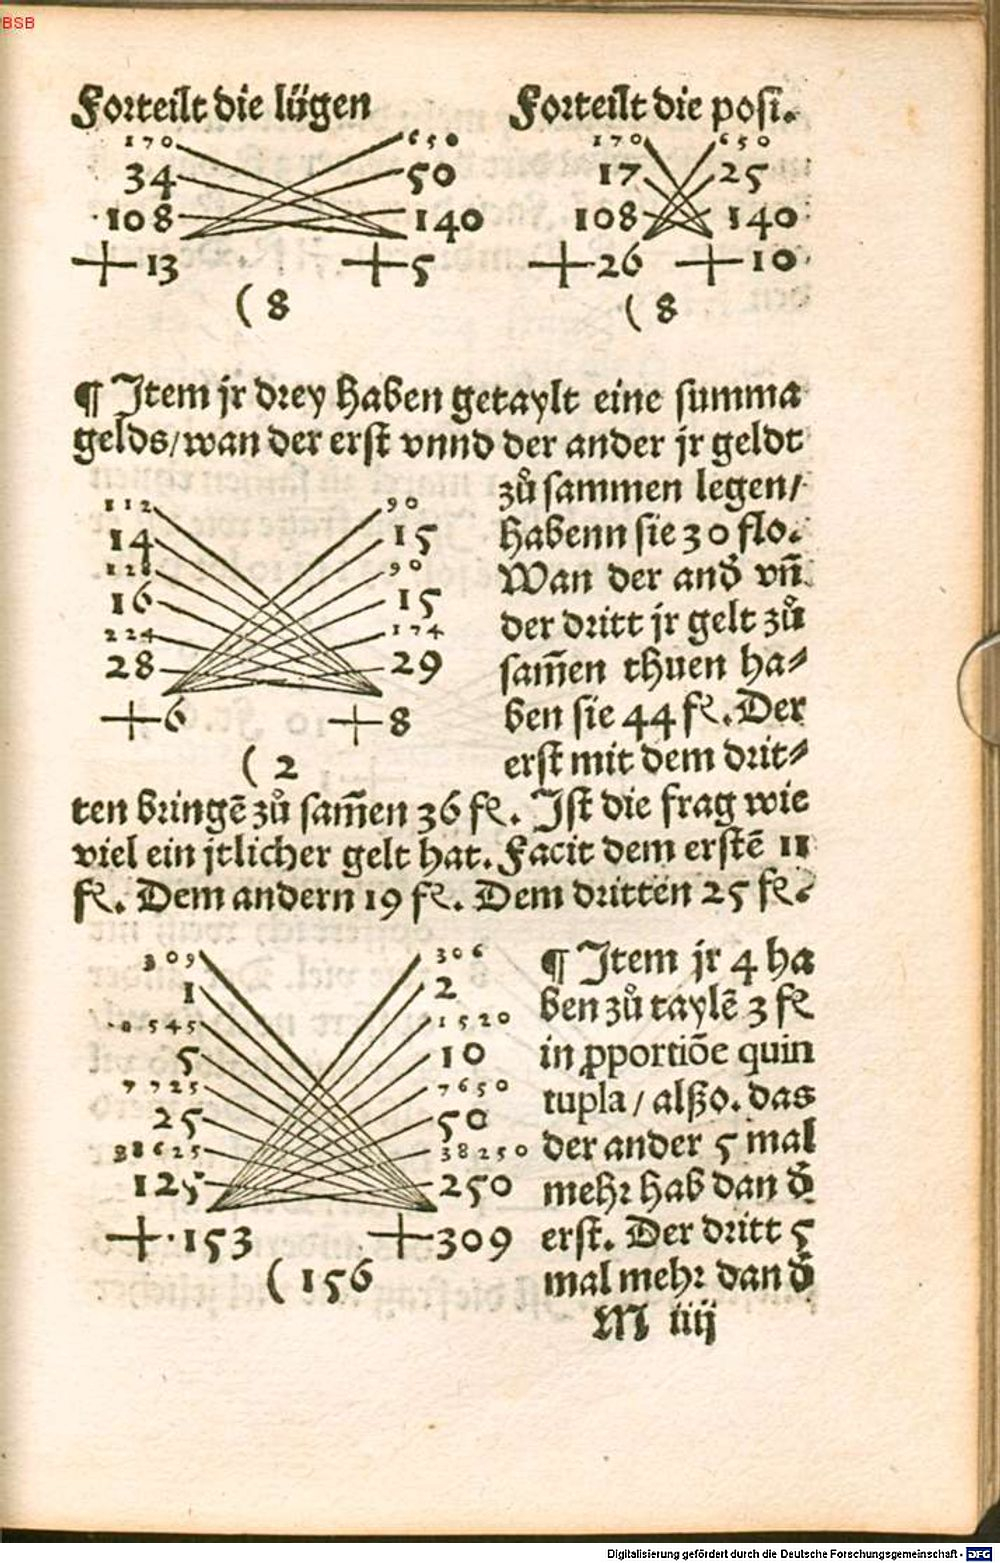 BSB
Forteilt die lügen
170 650
34 50
108 140
+ 13 + 5
( 8
Forteilt die posi.
170 650
17 25
108 140
+ 26 + 10
( 8
¶ Item jr drey haben getaylt eine summa
gelds/wan der erst vnnd der ander jr geldt
zů sammen legen/
habenn sie 30 flo.
Wan der and vn̄
der dritt jr gelt zů
sam̄en thuen ha⸗
ben sie 44 fl. Der
erst mit dem drit⸗
112 90
14 15
128 90
16 15
224 174
28 29
+ 6 + 8
( 2
ten bringē zů sam̄en 36 fl. Ist die frag wie
viel ein jtlicher gelt hat. Facit dem erstē 11
fl. Dem andern 19 fl. Dem dritten 25 fl.
309 306
1 2
1520
5 10
7725 7650
25 50
38625 38250
125 250
+ 153 + 309
( 156
¶ Item jr 4 ha
ben zů taylē 3 fl
in ꝓportiōe quin
tupla / alßo. das
der ander 5 mal
mehr hab dan đ
erst. Der dritt 5
mal mehr dan đ
M iiij
Digitalisierung gefördert durch die Deutsche Forschungsgemeinschaft - DFG